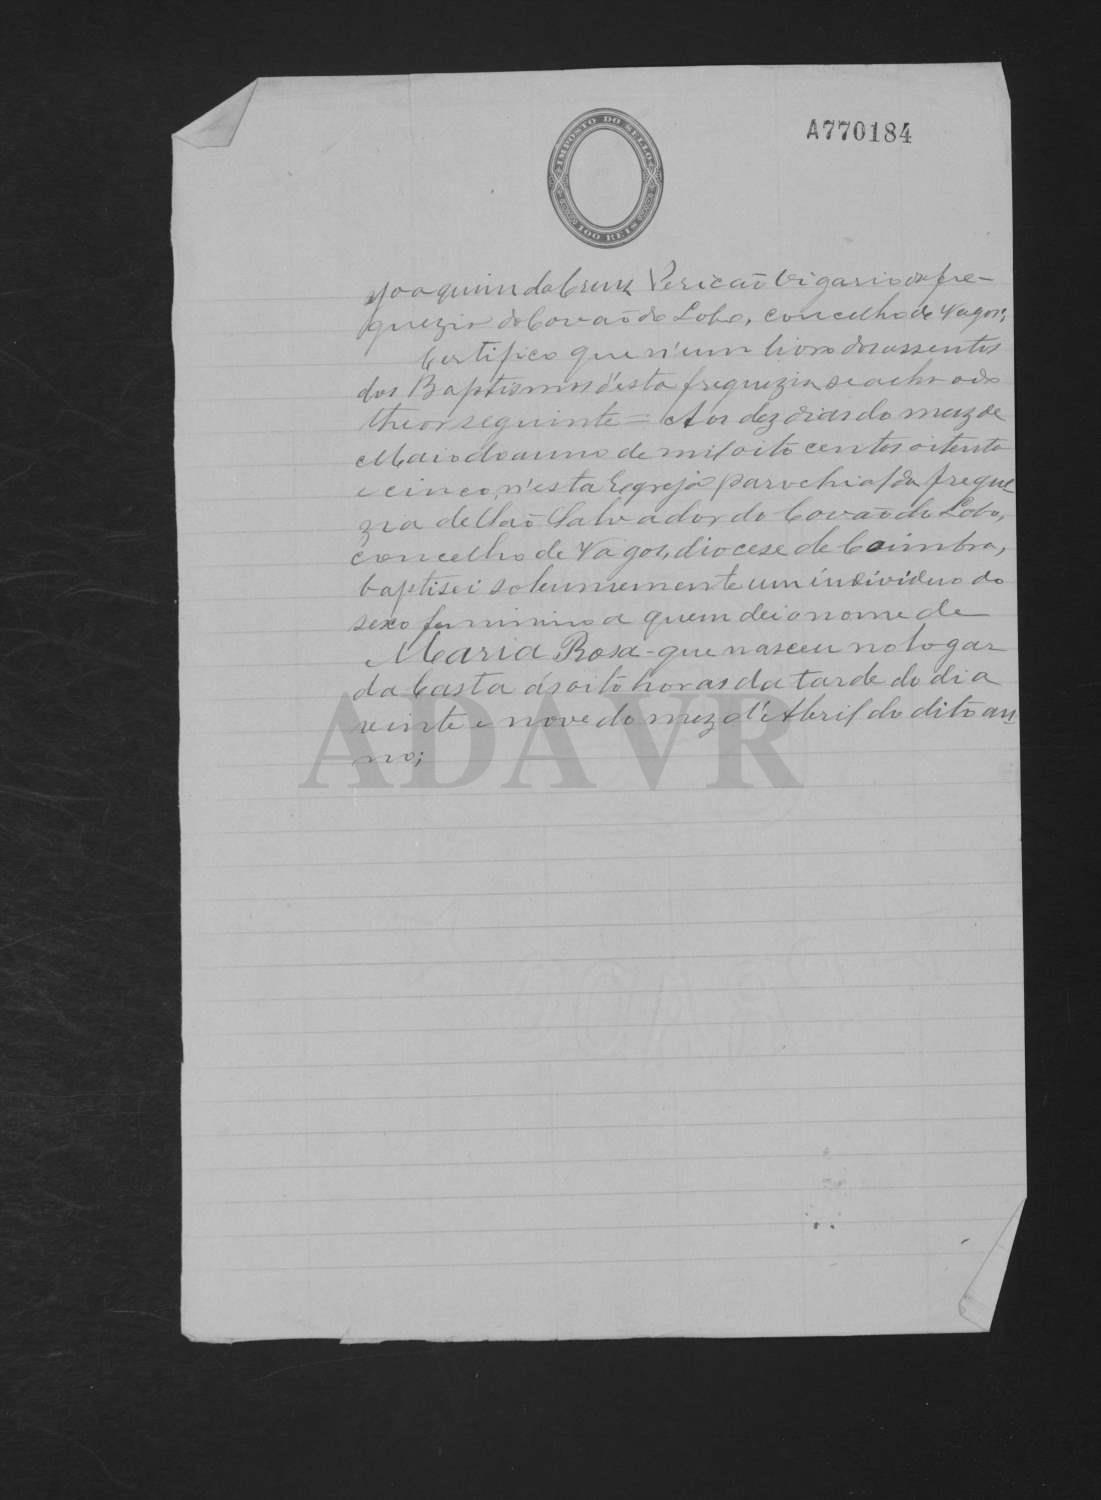 IMPOSTO DO SELLO
100 REIS
A770184
Joaquim da Cruz Pericão Vigario da fre-
guezia do Covão do Lobo, concelho de Vagos;
Certifico que n'um livro dos assentos
dos Baptismos d'esta freguezia se acha o do
theor seguinte = Aos dez dias do mez de
Maio do anno de mil oito centos oitenta
e cinco, n'esta Egreja parochial da fregue-
zia de São Salvador do Covão do Lobo,
concelho de Vagos, diocese de Coimbra,
baptisei solemnemente um individuo do
sexo feminino a quem dei o nome de
Maria Rosa - que nasceu no logar
da ás oito horas da tarde do dia
vinte e nove do mez d'Abril do dito an-
no;
ADAVR